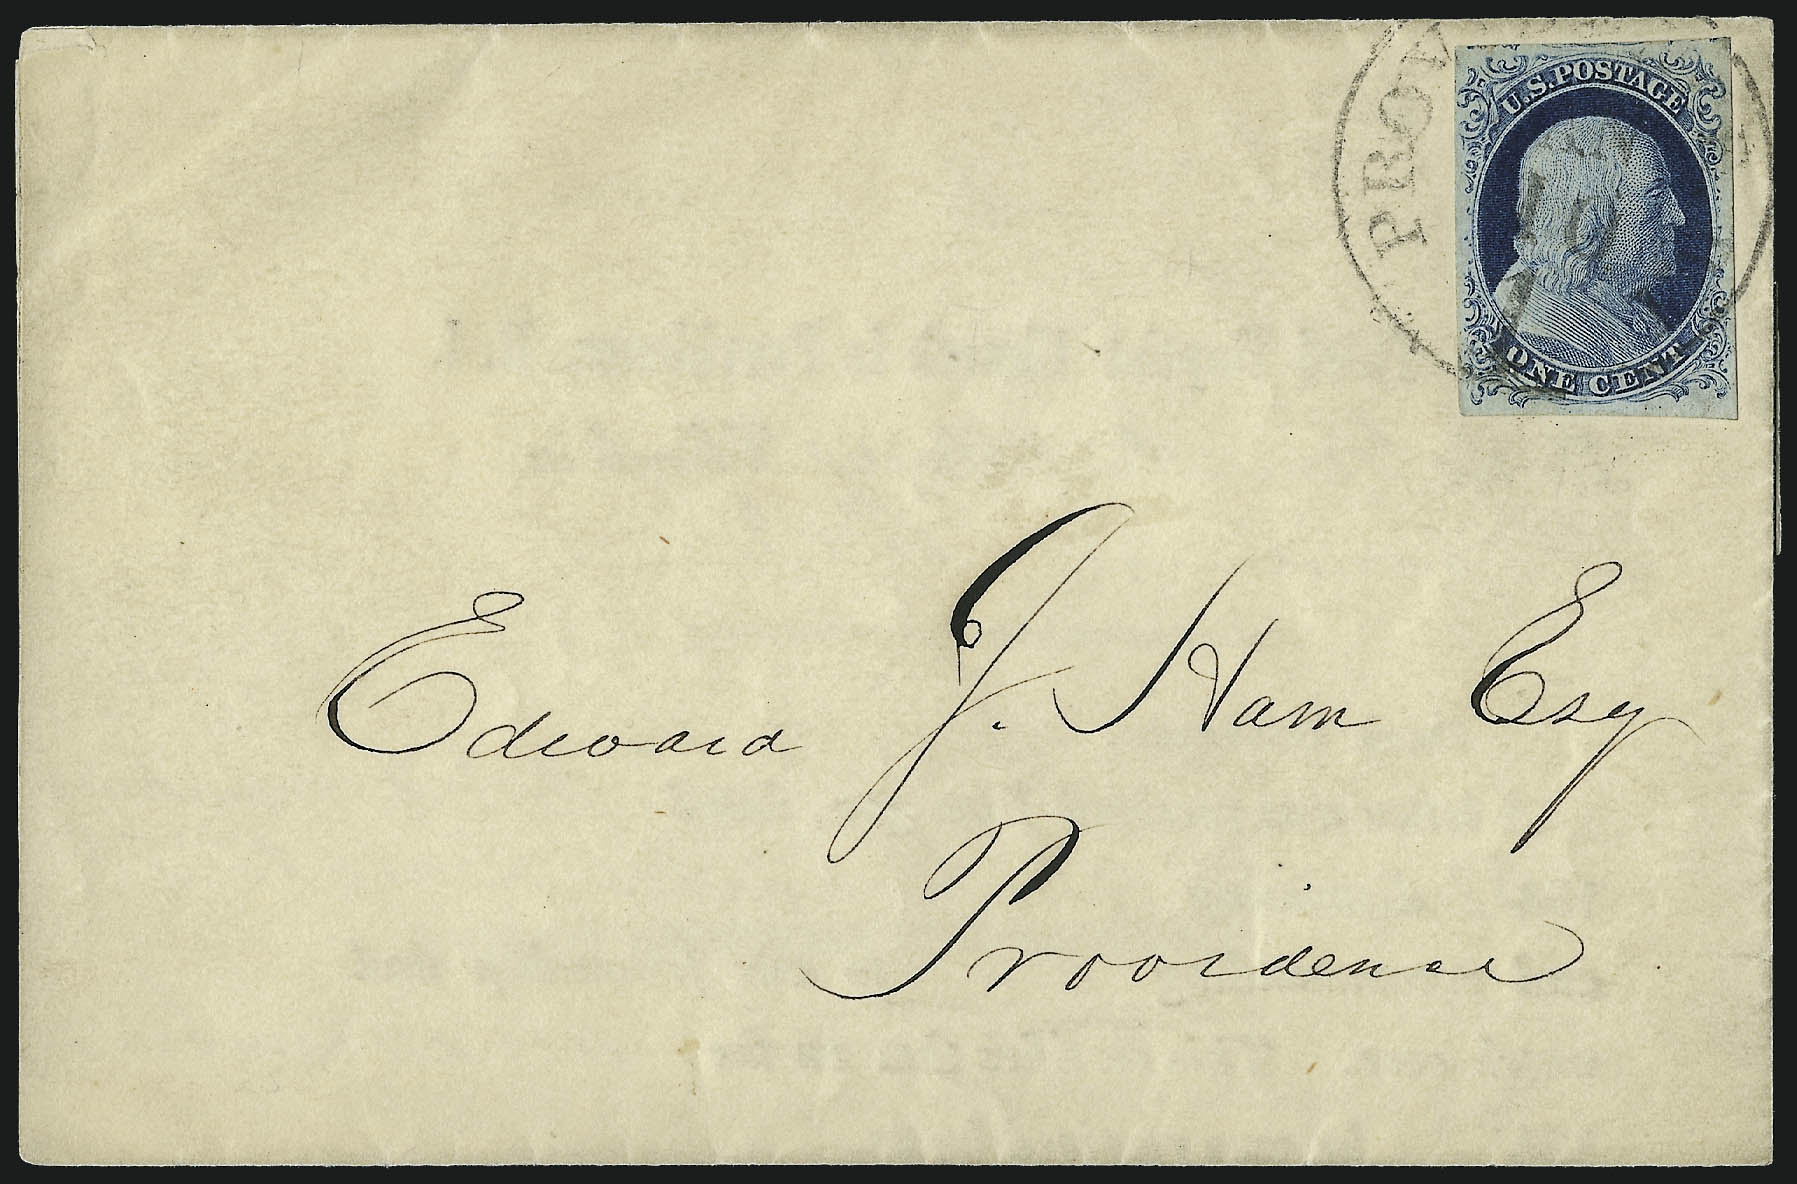 PROV
U.S. POSTAGE
19
ONE CENT
Edward J. Ham Esq
Providence